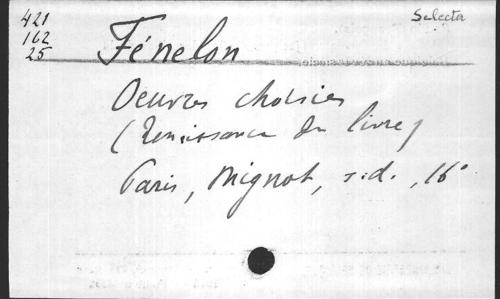 421
162
25
Selecta
Fénelon
Oeuvres choisies
(Renaissance du livre)
Paris, Mignot, s.d., 16°